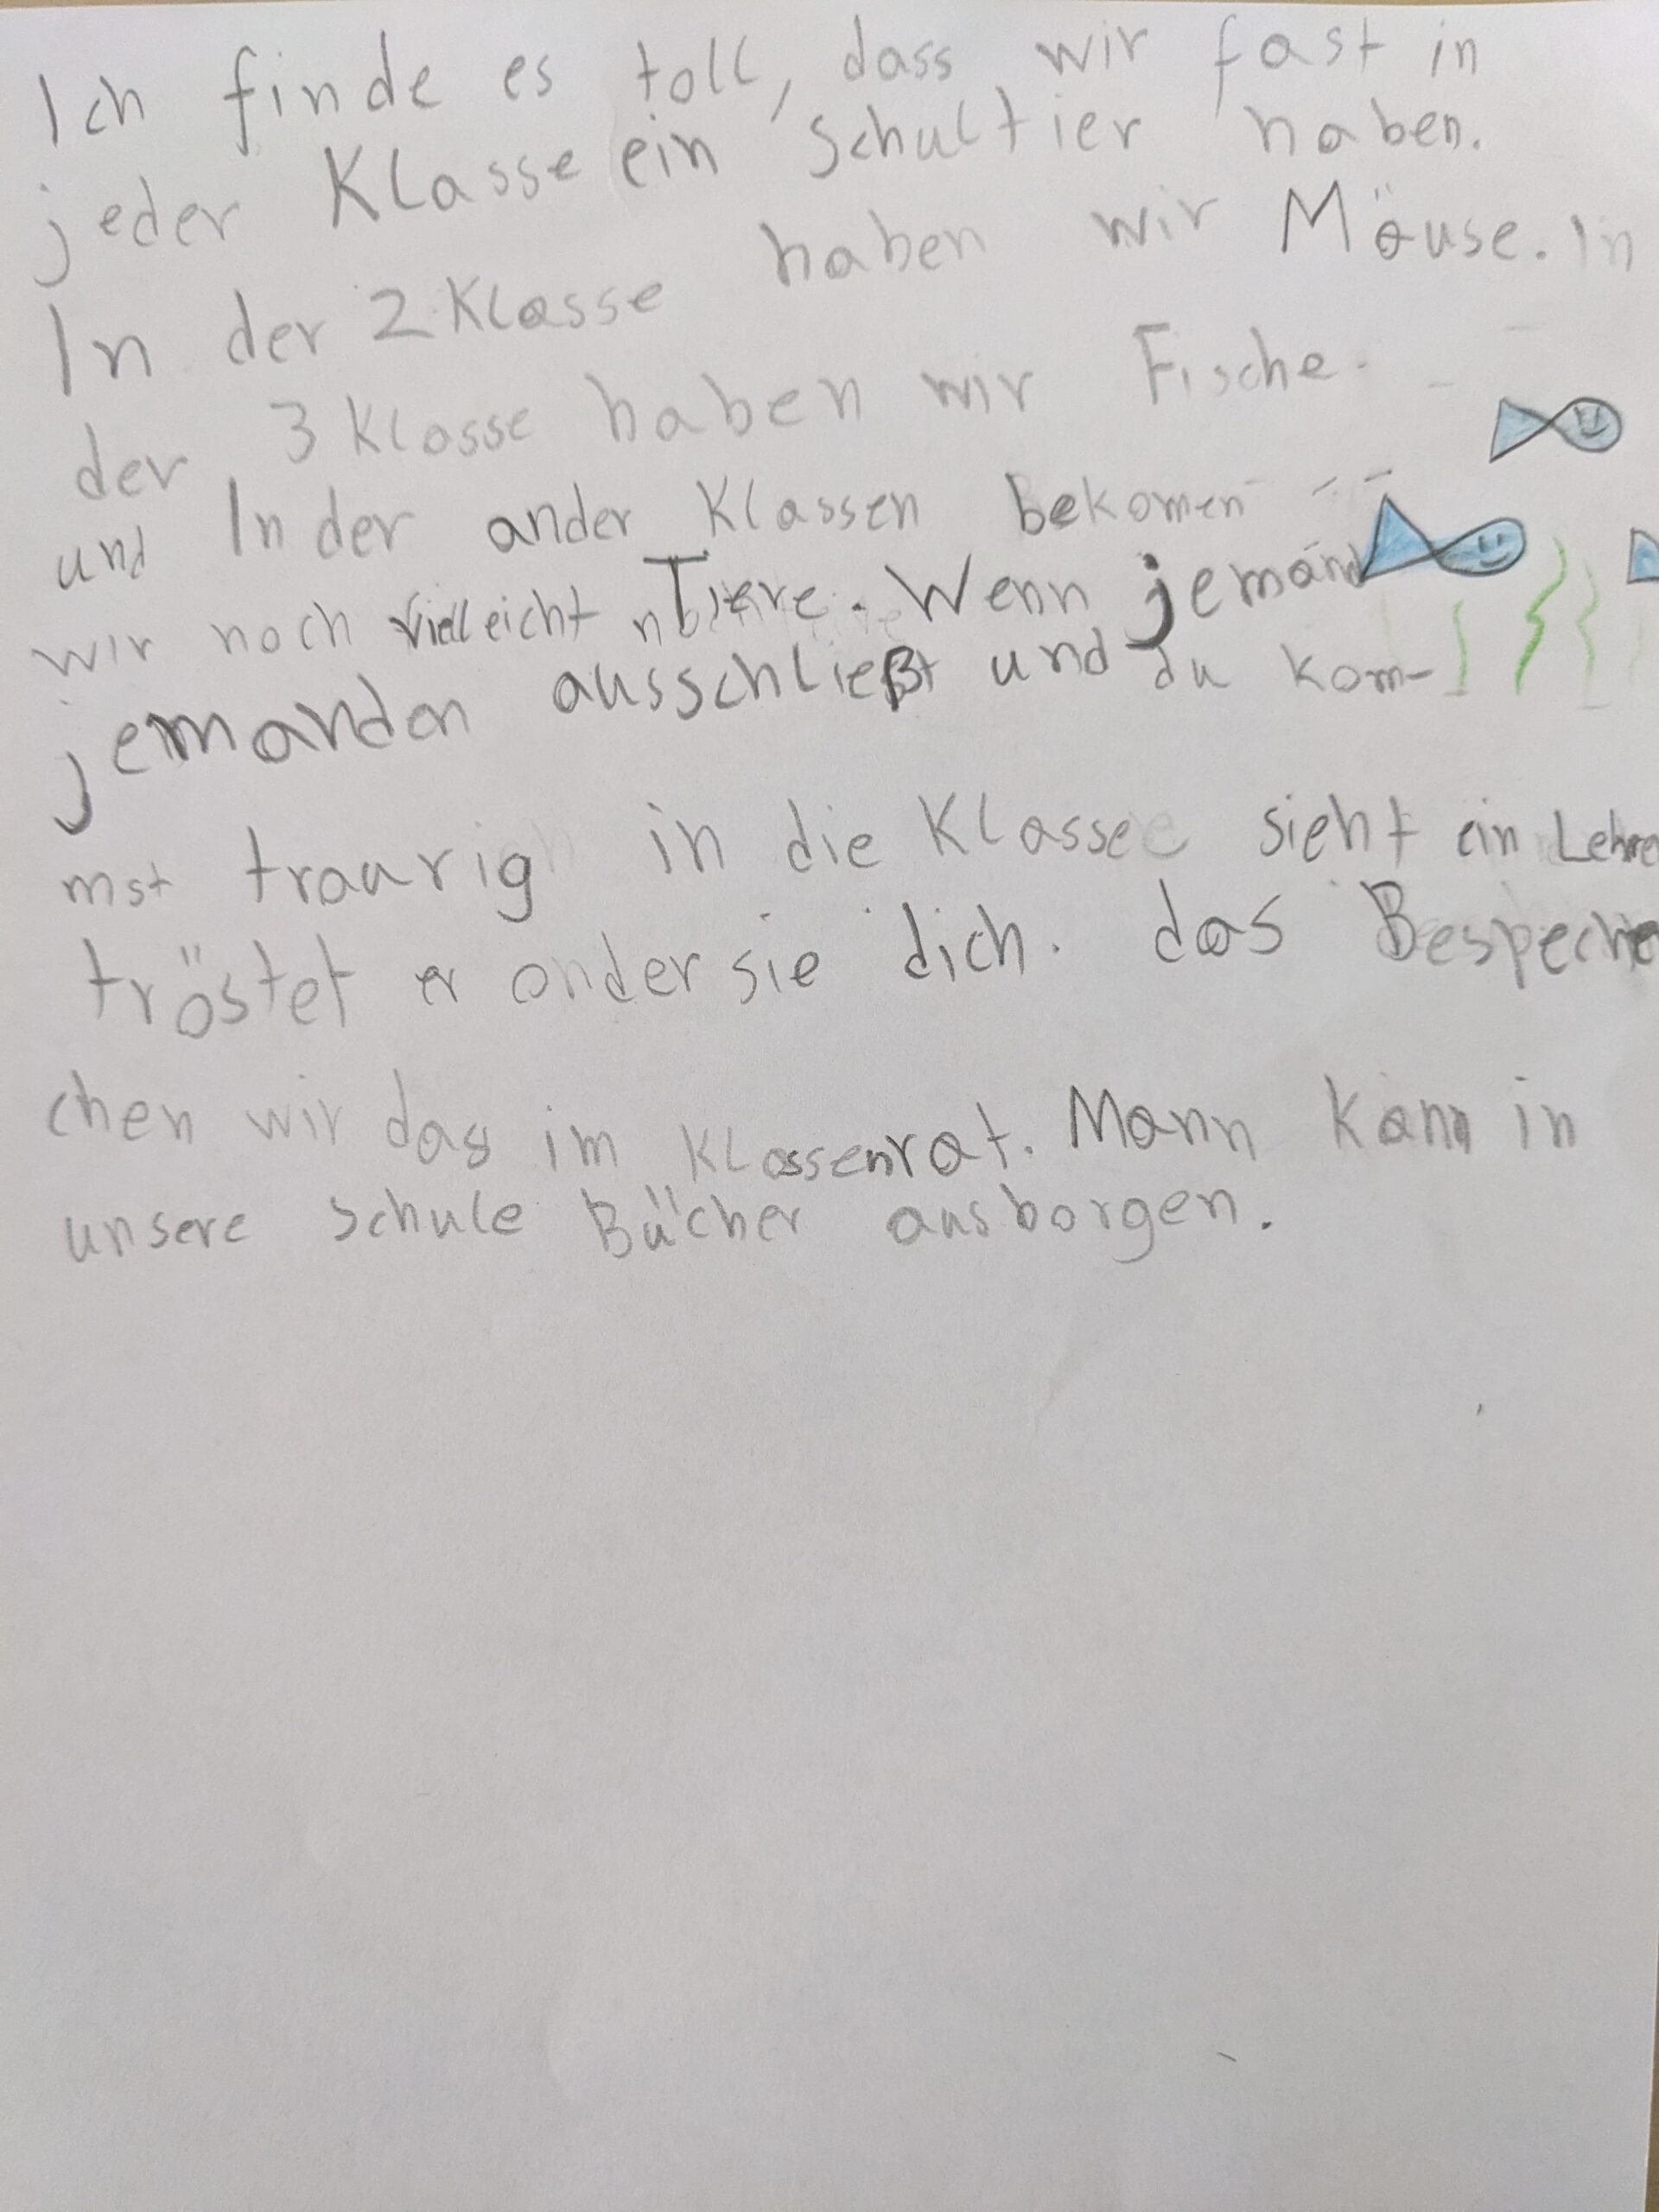 Ich finde es toll, dass wir fast in
jeder Klasse ein Schultier haben.
In der 2 Klasse haben wir Mäuse. In
der 3 Klasse haben wir Fische.
und In der ander Klassen bekomen
wir noch vielleicht Tiere. Wenn jemand
jemanden ausschließt und du kom-
mst traurig in die Klasse sieht ein Lehre
tröstet er onder sie dich. das Bespeche
chen wir das im Klassenrat. Mann kann in
unsere Schule Bücher ausborgen.